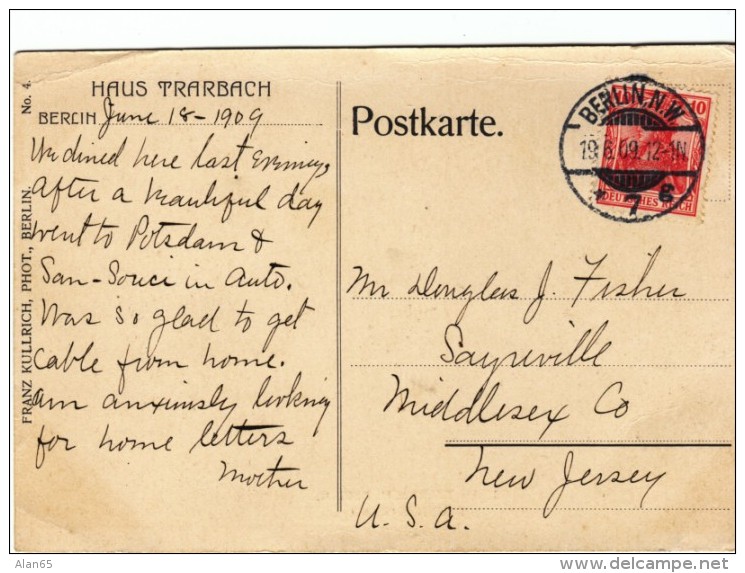 No. 4.
HAUS TRARBACH
BERLIN June 18-1909
We dined here last evening,
after a beautiful day
went to Potsdam &
San-Souci in Auto.
Was so glad to get
cable from home.
am anxiously looking
for home letters
Mother
FRANZ KULLRICH, PHOT., BERLIN.
Postkarte.
BERLIN, N.W.
19.6.09.12-1N.
* 7 g
10
DEUTSCHES REICH
Mr Douglas J. Fisher
Sayreville
Middlesex Co
New Jersey
U.S.A.
Alan65
delcampe.net